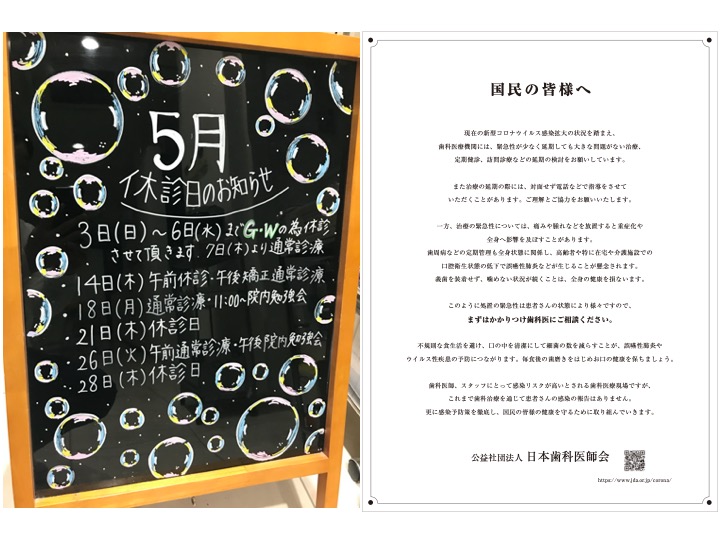 5月
休診日のお知らせ
3日(日)〜6日(水)までG・Wの為休診
させて頂きます.7日(木)より通常診療
14日(木)午前休診・午後矯正通常診療
18日(月)通常診療・11:00〜院内勉強会
21日(木)休診日
26日(火)午前通常診療・午後院内勉強会
28日(木)休診日
国民の皆様へ
現在の新型コロナウイルス感染拡大の状況を踏まえ、
歯科医療機関には、緊急性が少なく延期しても大きな問題がない治療、
定期健診、訪問診療などの延期の検討をお願いしています。
また治療の延期の際には、対面せず電話などで指導をさせて
いただくことがあります。ご理解とご協力をお願いいたします。
一方、治療の緊急性については、痛みや腫れなどを放置すると重症化や
全身へ影響を及ぼすことがあります。
歯周病などの定期管理も全身状態に関係し、高齢者や特に在宅や介護施設での
口腔衛生状態の低下で誤嚥性肺炎などが生じることが懸念されます。
義歯を装着せず、噛めない状況が続くことは、全身の健康を損ないます。
このように処置の緊急性は患者さんの状態により様々ですので、
まずはかかりつけ歯科医にご相談ください。
不規則な食生活を避け、口の中を清潔にして細菌の数を減らすことが、誤嚥性肺炎や
ウイルス性疾患の予防につながります。毎食後の歯磨きをはじめお口の健康を保ちましょう。
歯科医師、スタッフにとって感染リスクが高いとされる歯科医療現場ですが、
これまで歯科治療を通じて患者さんの感染の報告はありません。
更に感染予防策を徹底し、国民の皆様の健康を守るために取り組んでいきます。
公益社団法人 日本歯科医師会
https://www.jda.or.jp/corona/